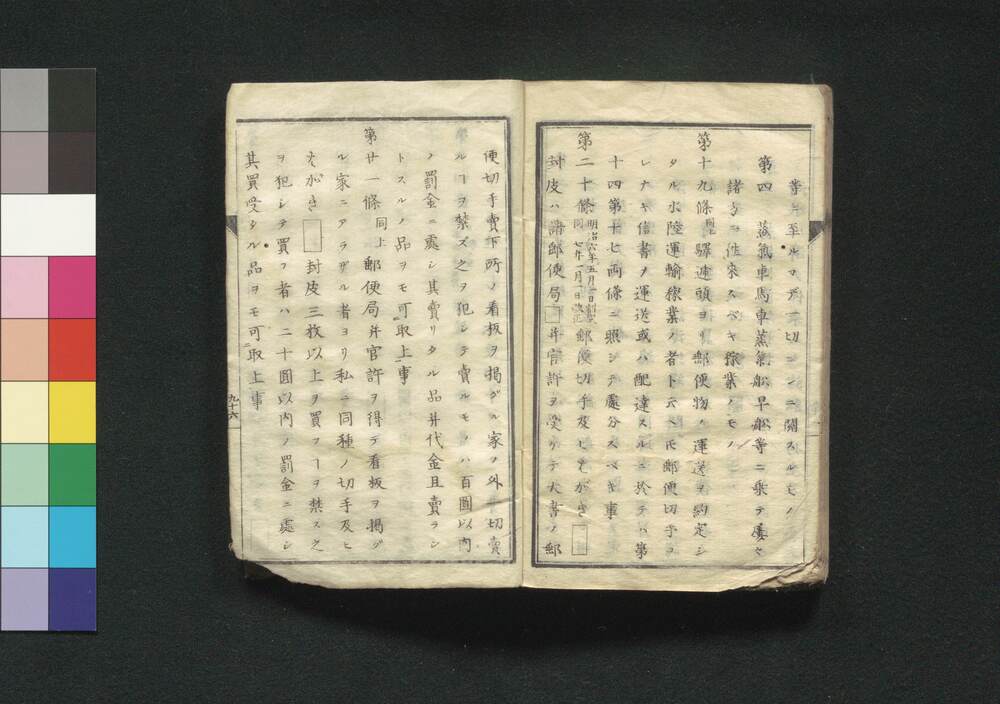 等ニ至ルマデ一切コレニ關スルモノ
第四 蒸氣車馬車蒸氣船早船等ニ乗テ
諸方ニ往來スベキ稼業ノモノ
第十九條 同上 驛逓頭ヨリ郵便物ノ運送ヲ約定シ
タル水陸運輸稼業ノ者ト云ヘ氏郵便切手コ
レナキ信書ノ運送或ハ配達スルニ於テハ第
十四第十七両條ニ照シテ處分スベキ事
第二十條 明治六年五月一日創定 同七年一月一日改正 郵便切手及ヒはがき
封皮ハ諸郵便局并官許ヲ受ケテ大書ノ郵
便切手賣下所ノ看板ヲ掲グル家ノ外一切賣
ルヿヲ禁ズ之ヲ犯シテ賣ルモノハ百圓以内
ノ罰金ニ處シ其賣リタル品并代金且賣ラン
トスルノ品ヲモ可取上事
第廿一條 同上 郵便局并官許ヲ得テ看板ヲ掲グ
ル家ニアラザル者ヨリ私ニ同種ノ切手及ヒ
はがき封皮三枚以上ヲ買フヿヲ禁ス之
ヲ犯シテ買フ者ハ二十圓以内ノ罰金ニ處シ
其買受シル品ヲモ可取上事
九十六